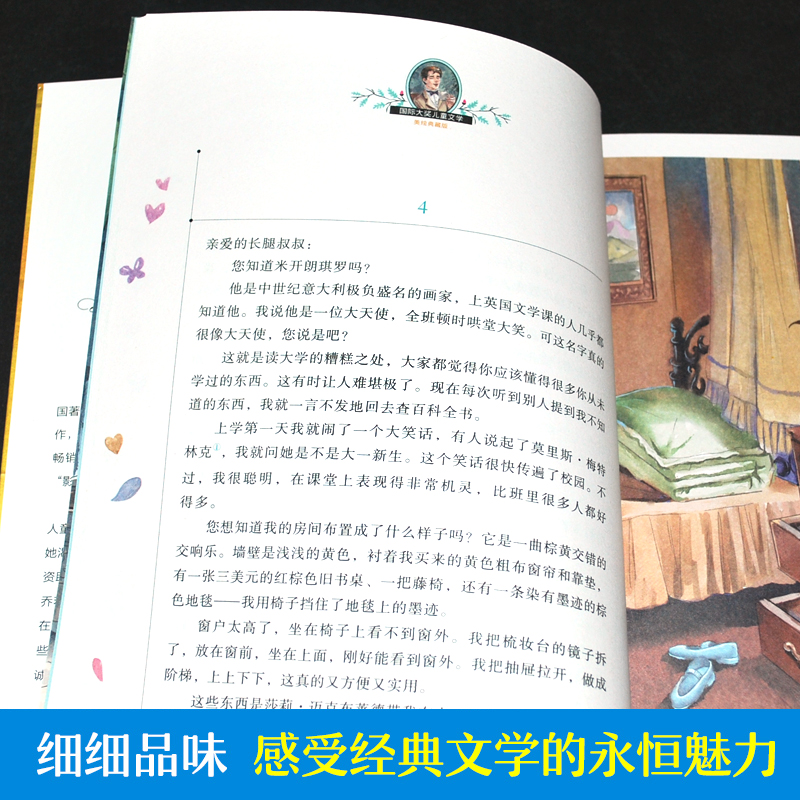 国际大奖儿童文学
美绘典藏版
4
亲爱的长腿叔叔：
您知道米开朗琪罗吗？
他是中世纪意大利极负盛名的画家，上英国文学课的人几乎都
知道他。我说他是一位大天使，全班顿时哄堂大笑。可这名字真的
很像大天使，您说是吧？
这就是读大学的糟糕之处，大家都觉得你应该懂得很多你从未
学过的东西。这有时让人难堪极了。现在每次听到别人提到我不知
道的东西，我就一言不发地回去查百科全书。
上学第一天我就闹了一个大笑话，有人说起了莫里斯·梅特
林克①，我就问她是不是大一新生。这个笑话很快传遍了校园。不
过，我很聪明，在课堂上表现得非常机灵，比班里很多人都好
得多。
您想知道我的房间布置成了什么样子吗？它是一曲棕黄交错的
交响乐。墙壁是浅浅的黄色，衬着我买来的黄色粗布窗帘和靠垫，
有一张三美元的红棕色旧书桌、一把藤椅，还有一条染有墨迹的棕
色地毯——我用椅子挡住了地毯上的墨迹。
窗户太高了，坐在椅子上看不到窗外。我把梳妆台的镜子拆
了，放在窗前，坐在上面，刚好能看到窗外。我把抽屉拉开，做成
阶梯，上上下下，这真的又方便又实用。
这些东西是莎莉·迈克布莱德帮我
国著
作，
畅销
“影
人童
她渴
资助
乔
在
些
诚
细细品味 感受经典文学的永恒魅力